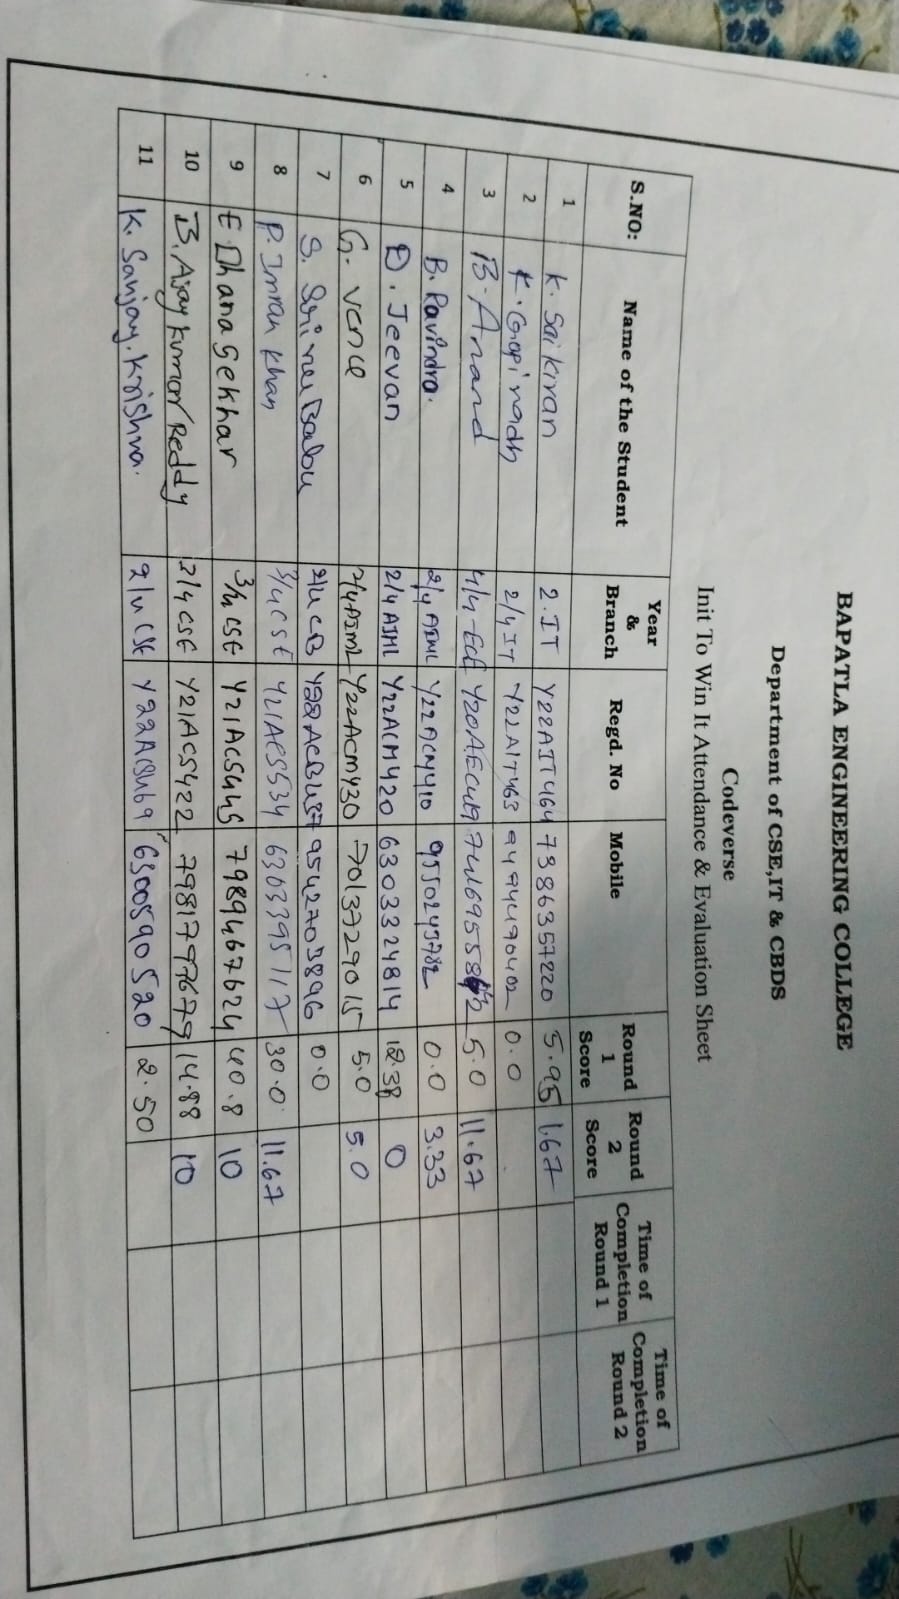 BAPATLA ENGINEERING COLLEGE
Department of CSE,IT & CBDS
Codeverse
Init To Win It Attendance & Evaluation Sheet
S.NO: Name of the Student Year & Branch Regd. No Mobile Round 1 Score Round 2 Score Time of Completion Round 1 Time of Completion Round 2
1 K. Sai kiran 2. IT Y22AIT464 7386357220 5.95 1.67
2 K. Gopi nadh 2/4 IT Y22AIT463 9494490402 0.0
3 B. Anand 4/4-ECE Y20AEC419 5.0 11.67
4 B. Ravindra. 2/4 AIML Y22ACM410 9550243782 0.0 3.33
5 D. Jeevan 2/4 AIML Y22ACM420 6303324814 12.38 0
6 G. 2/4 AIML Y22ACM430 7013729015 5.0 5.0
7 S. Babu 2/4 CB 9542703896 0.0
8 P. Imran Khan 3/4 CSE Y21ACS534 6303395117 30.0 11.67
9 E. Dhana Sekhar 3/4 CSE Y21ACS445 7989467624 40.8 10
10 B. Ajay Kumar Reddy 3/4 CSE Y21ACS422 7981797679 14.88 10
11 K. Sanjay. Krishna. 2/4 CSE Y22ACS469 6300590520 2.50